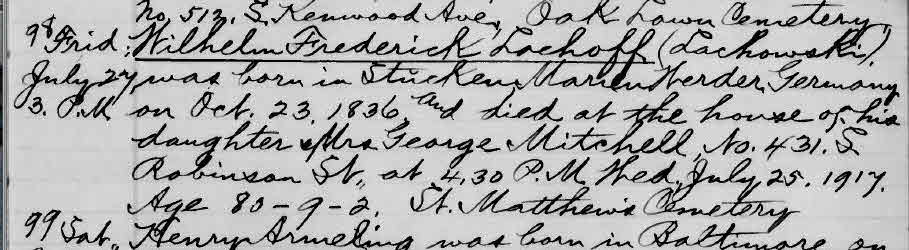 No. 512. S. Kenwood Ave., Oak Lawn Cemetery.
98 Frid. Wilhelm Frederick Lachoff (Lachowski),
July 27, was born in Stucken, Marienwerder, Germany
3. P.M. on Oct. 23, 1836, and died at the house of his
daughter Mrs George Mitchell, No. 431. S.
Robinson St., at 4,30 P.M. Wed. July, 25. 1917.
Age 80-9-2. St. Matthews Cemetery
99 Sat., Henry Armeling was born in Baltimore on